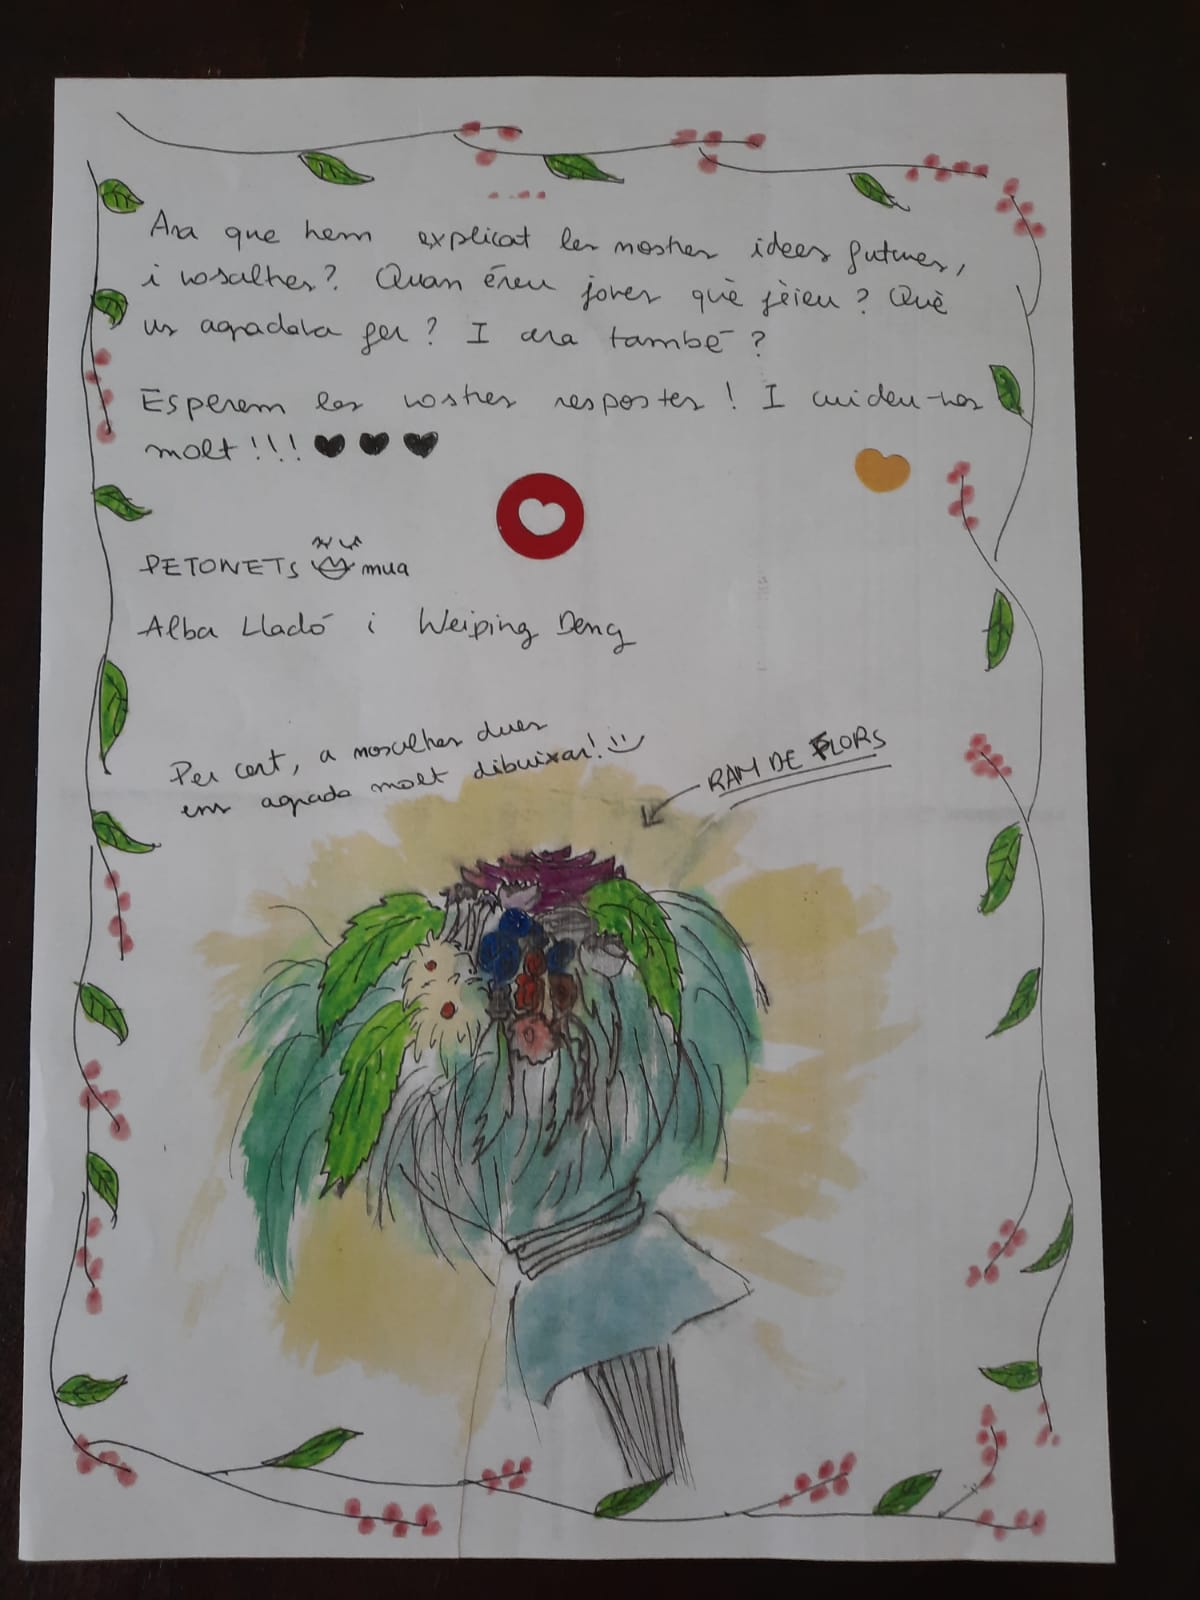 Ara que hem explicat les nostres idees futures,
i vosaltres? Quan éreu joves què fèieu? Què
us agradava fer? I ara també?
Esperem les vostres respostes! I cuideu-vos
molt!!! ♥ ♥ ♥
PETONETS mua
Alba Lladó i Weiping Deng
Per cert, a nosaltres dues
ens agrada molt dibuixar! :)
RAM DE FLORS